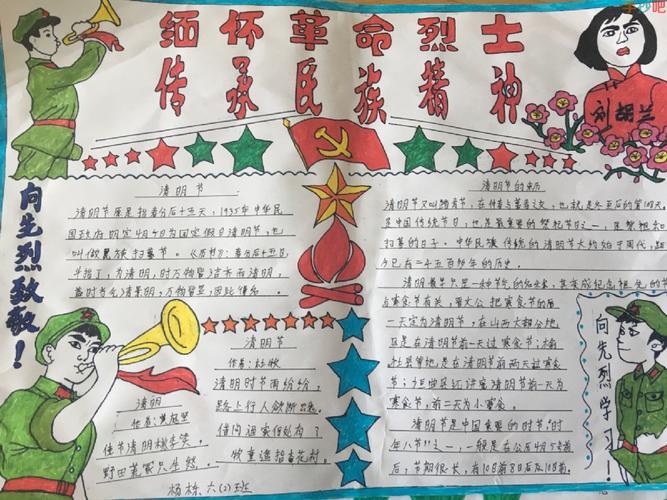 缅怀革命烈士
传承民族精神
刘胡兰
向先烈致敬!
清明节
清明节原是指春分后十五天,1935年中华民
国政府明定4月5日为国定假日清明节,也
叫做民族扫墓节。《历书》:春分后十五日,
斗指丁,为清明,时万物皆洁齐而清明,
盖时当气清景明,万物皆显,因此得名。
清明节的来历
清明节又叫踏青节,在仲春与暮春之交,也就是冬至后的第108天,
是中国传统节日,也是最重要的祭祀节日之一,是祭祖和
扫墓的日子。中华民族传统的清明节大约始于周代,距
今已有二千五百多年的历史。
清明最早只是一种节气的名称,其变成纪念祖先的节
与寒食节有关,晋文公把寒食节的后
一天定为清明节,在山西大部分地
区是在清明节前一天过寒食节;榆
社县等地是在清明节前两天过寒食
节;垣曲还讲究清明节前一天为
寒食节,前二天为小寒食。
清明节是中国重要的时节"时
年八节"之一,一般是在公历4月5号前
后,节期很长,有10日前8日后及10日前
清明节
作者:杜牧
清明时节雨纷纷,
路上行人欲断魂。
借问酒家何处有?
牧童遥指杏花村。
清明
作者:黄庭坚
佳节清明桃李笑,
野田荒冢只生愁。
杨栋,六(2)班
向先烈学习!